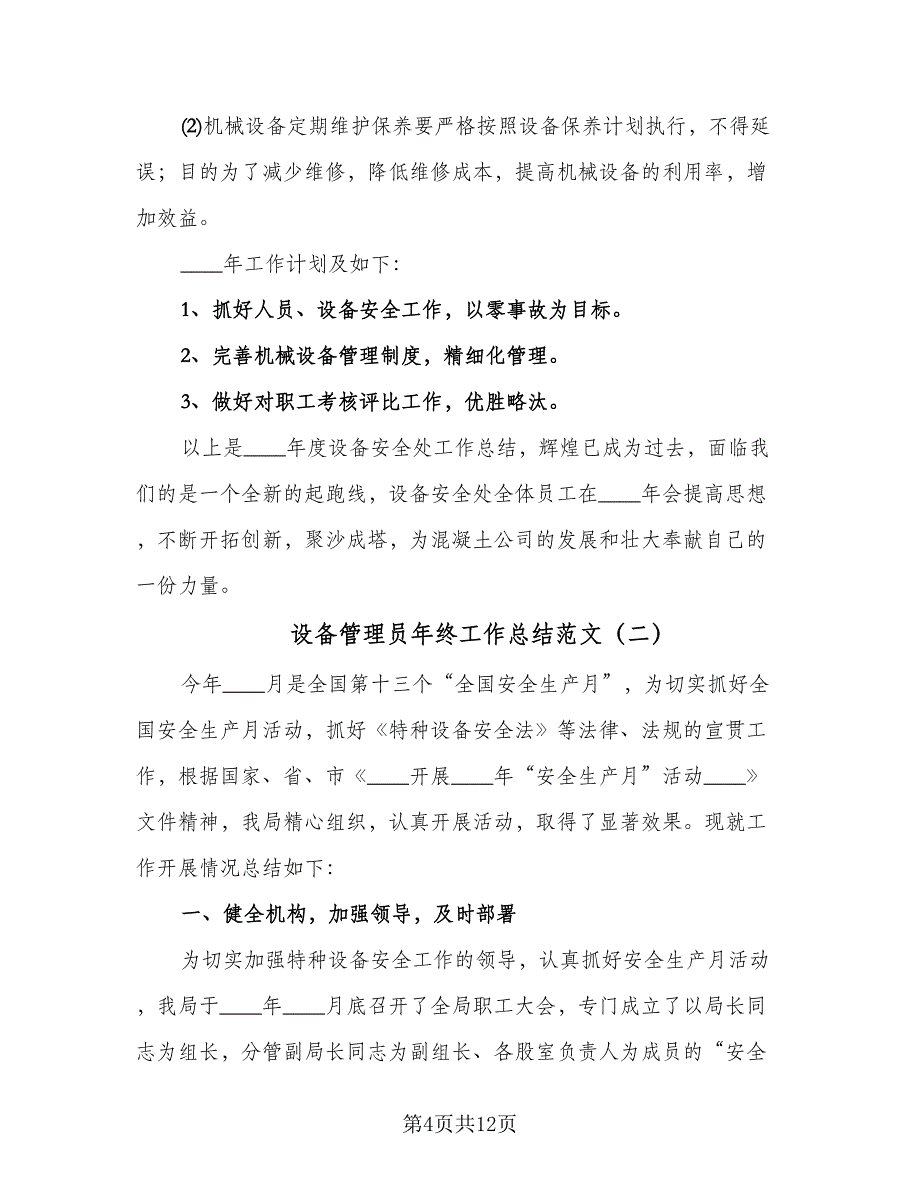 ⑵机械设备定期维护保养要严格按照设备保养计划执行，不得延
误；目的为了减少维修，降低维修成本，提高机械设备的利用率，增
加效益。
____年工作计划及如下：
1、抓好人员、设备安全工作，以零事故为目标。
2、完善机械设备管理制度，精细化管理。
3、做好对职工考核评比工作，优胜略汰。
以上是____年度设备安全处工作总结，辉煌已成为过去，面临我
们的是一个全新的起跑线，设备安全处全体员工在____年会提高思想
，不断开拓创新，聚沙成塔，为混凝土公司的发展和壮大奉献自己的
一份力量。
设备管理员年终工作总结范文（二）
今年____月是全国第十三个“全国安全生产月”，为切实抓好全
国安全生产月活动，抓好《特种设备安全法》等法律、法规的宣贯工
作，根据国家、省、市《____开展____年“安全生产月”活动____》
文件精神，我局精心组织，认真开展活动，取得了显著效果。现就工
作开展情况总结如下：
一、健全机构，加强领导，及时部署
为切实加强特种设备安全工作的领导，认真抓好安全生产月活动
，我局于____年____月底召开了全局职工大会，专门成立了以局长同
志为组长，分管副局长同志为副组长、各股室负责人为成员的“安全
第4页共12页